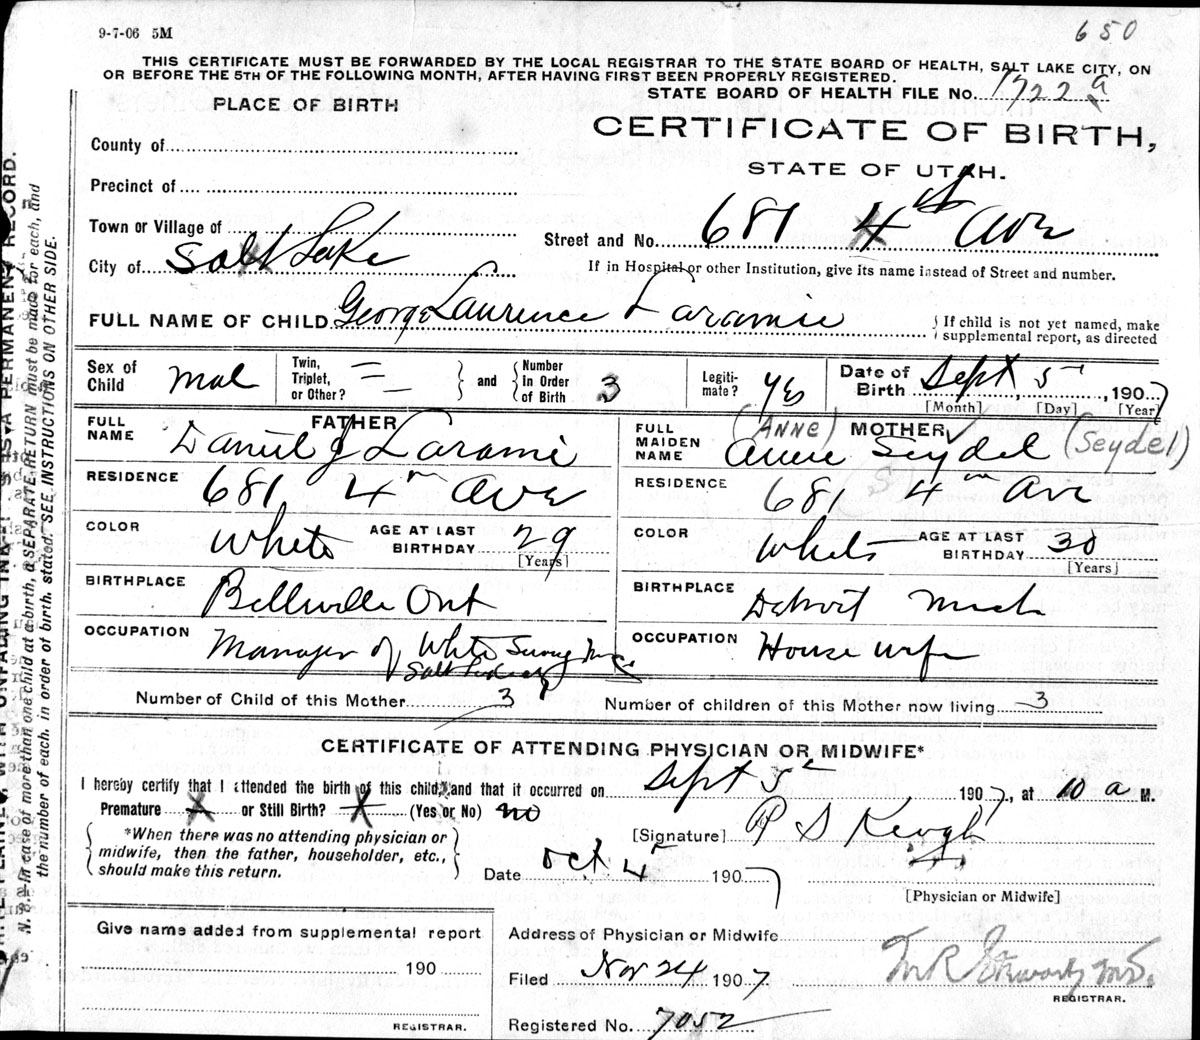 9-7-06 5M
650
THIS CERTIFICATE MUST BE FORWARDED BY THE LOCAL REGISTRAR TO THE STATE BOARD OF HEALTH, SALT LAKE CITY, ON
OR BEFORE THE 5TH OF THE FOLLOWING MONTH, AFTER HAVING FIRST BEEN PROPERLY REGISTERED.
STATE BOARD OF HEALTH FILE No. 1722 a
PLACE OF BIRTH
CERTIFICATE OF BIRTH,
STATE OF UTAH.
County of
Precinct of
Town or Village of
City of Salt Lake
Street and No. 681 4th Ave
If in Hospital or other Institution, give its name instead of Street and number.
FULL NAME OF CHILD George Laurence Laramie
If child is not yet named, make
supplemental report, as directed
Sex of Child Mal
Twin, Triplet, or Other?
and
Number In Order of Birth 3
Legiti-mate? yes
Date of Birth Sept 5, 1907
[Month] [Day] [Year]
FATHER
FULL NAME Daniel J Larami
RESIDENCE 681 4 Ave
COLOR White
AGE AT LAST BIRTHDAY 29
[Years]
BIRTHPLACE Bellville Ont
OCCUPATION Manager of White
MOTHER
FULL MAIDEN NAME (ANNE) Seydel (Seydel)
RESIDENCE 681 4 Ave
COLOR White
AGE AT LAST BIRTHDAY 30
[Years]
BIRTHPLACE Detroit Mich
OCCUPATION House wife
Number of Child of this Mother 3
Number of children of this Mother now living 3
CERTIFICATE OF ATTENDING PHYSICIAN OR MIDWIFE*
I hereby certify that I attended the birth of this child, and that it occurred on Sept 5 1907, at 10 a M.
Premature or Still Birth? (Yes or No) no
*When there was no attending physician or
midwife, then the father, householder, etc.,
should make this return.
[Signature] P S Keogh
[Physician or Midwife]
Date Oct 4 1907
Give name added from supplemental report
190
REGISTRAR.
Address of Physician or Midwife
Filed Nov 24 1907
REGISTRAR.
Registered No. 7052
N. B.—In case of more than one child at a birth, a SEPARATE RETURN must be made for each, and
the number of each, in order of birth, stated. SEE INSTRUCTIONS ON OTHER SIDE.